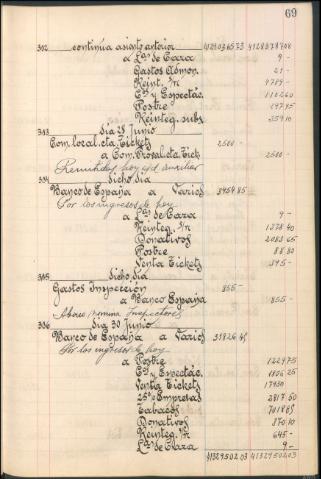 69
332 continúa asiento anterior 4129036573 4128878708
a Lª de Caza 9 -
Gastos Admon. 21 -
Reint. 9789 -
Cª y Espectác. 1102 60
Postre 197 85
Reinteg. subs. 259 10
333 día 28 Junio
Com. local. cta. Tickets 2500 -
a Com. Provol. cta. Tick. 2500 -
Remitidos hoy
334 dicho día
Banco de España a Varios 3954 85
Por los ingresos de hoy
a Lª de Caza 9 -
Reinteg. 1378 40
Donativos 2083 65
Postre 88 80
Venta Tickets 395 -
335 dicho día
Gastos Inspección 855 -
a Banco España 855 -
nómina Inspectores
336 día 30 Junio
Banco de España a Varios 31826 45
Por los ingresos de hoy
a Postre 1229 75
Cª y Espectác.
Venta Tickets 17930
25% Empresas 2817 50
Tabacos 7018 85
Donativos 870 10
Reinteg. 645 -
Lª de Caza 9 -
4132950203 4132950203